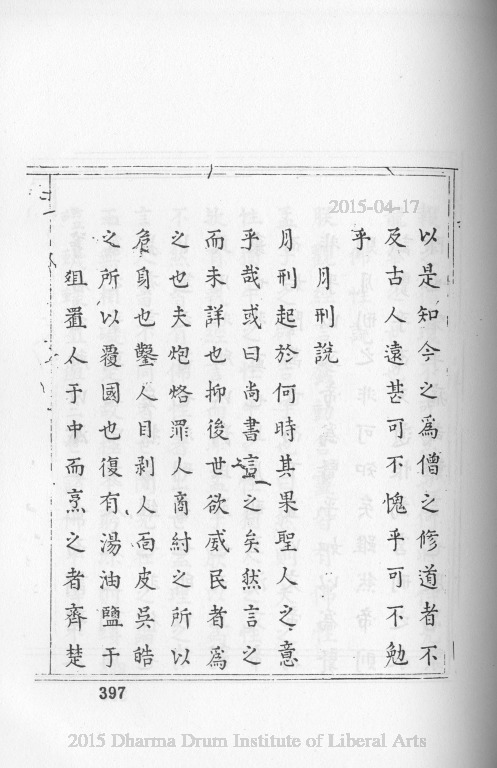 2015-04-17
以是知今之為僧之修道者不
及古人遠甚可不愧乎可不勉
乎
月刑說
月刑起於何時其果聖人之意
乎哉或曰尚書言之矣然言之
而未詳也抑後世欲威民者為
之也夫炮烙罪人商紂之所以
危身也鑿人目剥人靣皮吳皓
之所以覆國也復有湯油鹽于
俎置人于中而烹之者齊楚
397
2015 Dharma Drum Institute of Liberal Arts